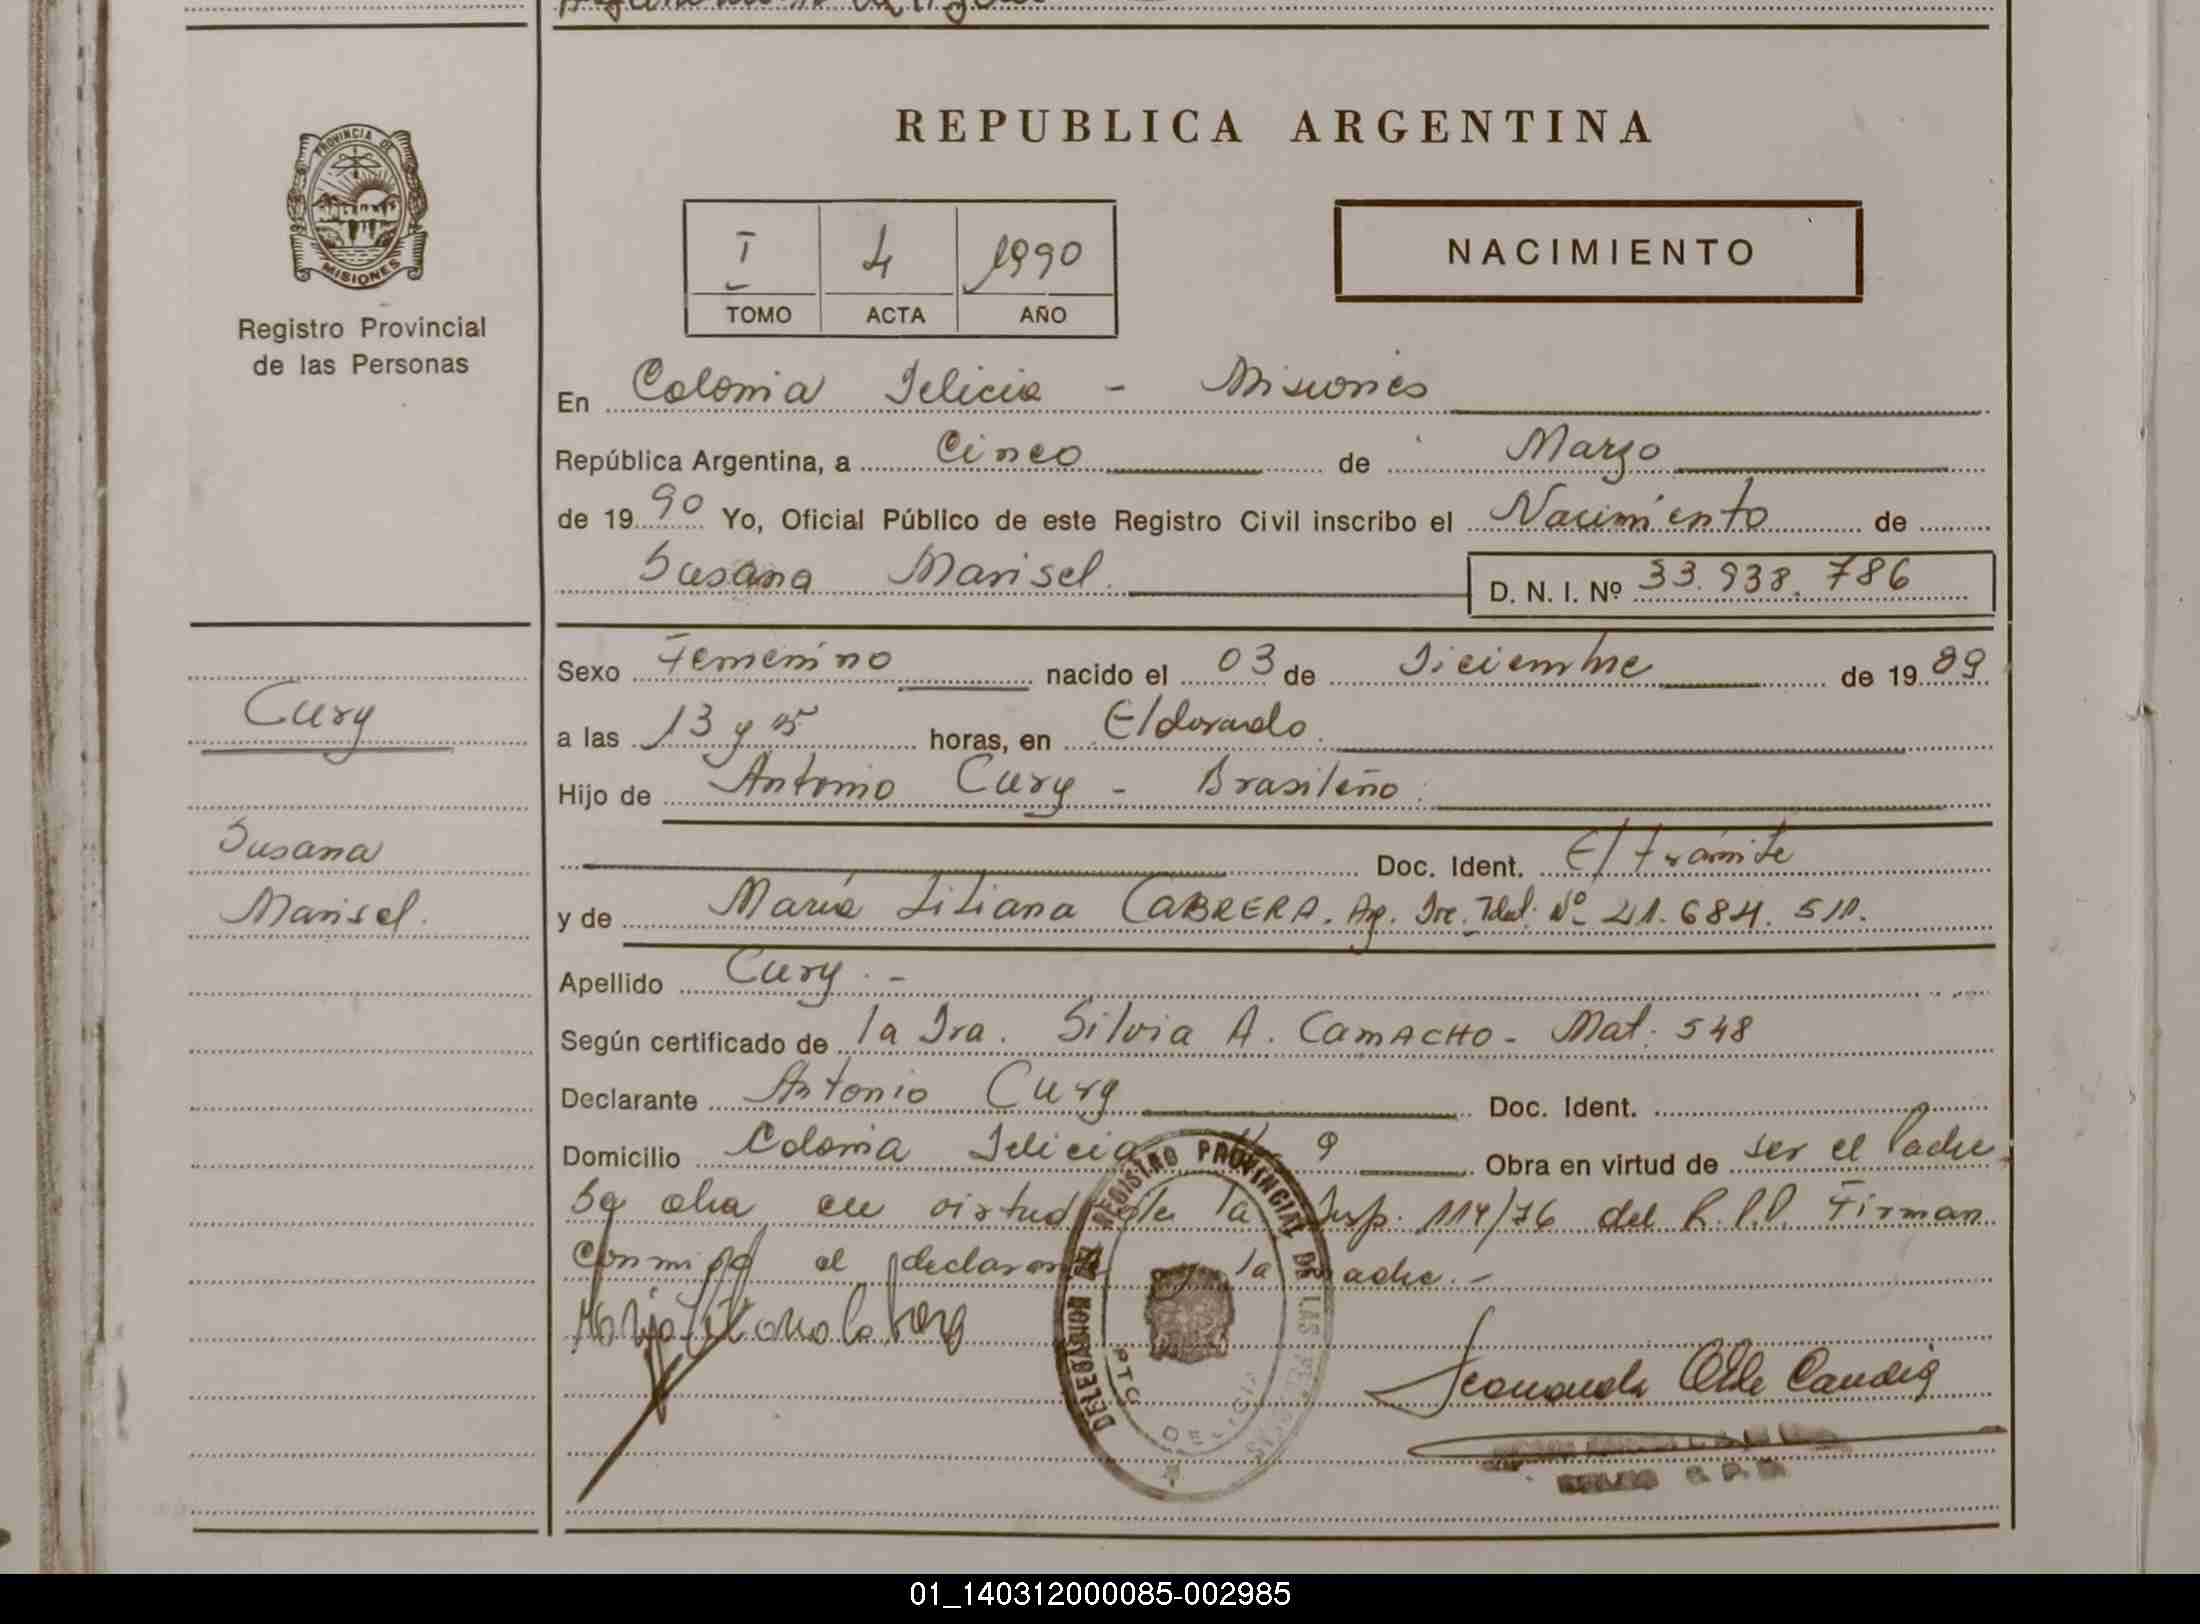 PROVINCIA DE
MISIONES
Registro Provincial
de las Personas
Cury
Susana
Marisel.
REPUBLICA ARGENTINA
I 4 1990
TOMO ACTA AÑO
NACIMIENTO
En Colonia Delicia - Misiones
República Argentina, a Cinco de Marzo
de 1990 Yo, Oficial Público de este Registro Civil inscribo el Nacimiento de
Susana Marisel. D. N. I. Nº 33.938.786
Sexo Femenino nacido el 03 de Diciembre de 1989
a las 13 y 15 horas, en Eldorado.
Hijo de Antonio Cury - Brasileño.
Doc. Ident. E/ trámite
y de María Liliana CABRERA. Arg. Doc. Idet. Nº 21.684.511.
Apellido Cury. -
Según certificado de la Dra. Silvia A. CAMACHO - Mat. 548
Declarante Antonio Cury Doc. Ident.
Domicilio Colonia Delicia 9 Obra en virtud de ser el Padre
Se obra en virtud de la Disp. 114/76 del R.P.P. Firman
conmigo el declarante y la Madre. -
DELEGACION DEL REGISTRO PROVINCIAL DE LAS PERSONAS
01_140312000085-002985